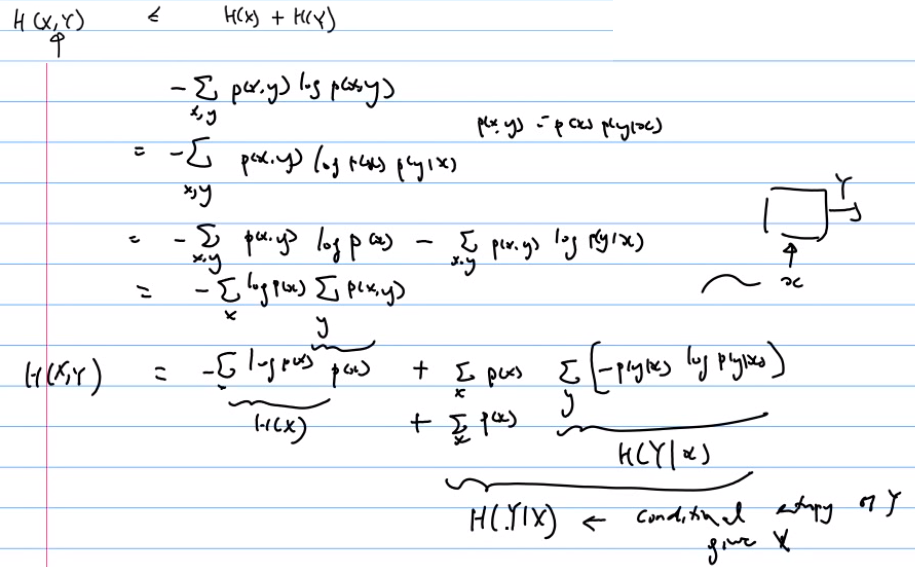 H(X,Y) ≤ H(X) + H(Y)
↑
- ∑_{x,y} p(x,y) log p(x,y)
p(x,y) = p(x) p(y|x)
= - ∑_{x,y} p(x,y) log p(x) p(y|x)
Y
= - ∑_{x,y} p(x,y) log p(x) - ∑_{x,y} p(x,y) log p(y|x)
↑
x
= - ∑_x log p(x) ∑_y p(x,y)
H(X,Y) = - ∑ log p(x) p(x) + ∑_x p(x) ∑_y [-p(y|x) log p(y|x)]
H(X) + ∑_x p(x)
H(Y|x)
H(Y|X) ← conditional entropy of Y
give X